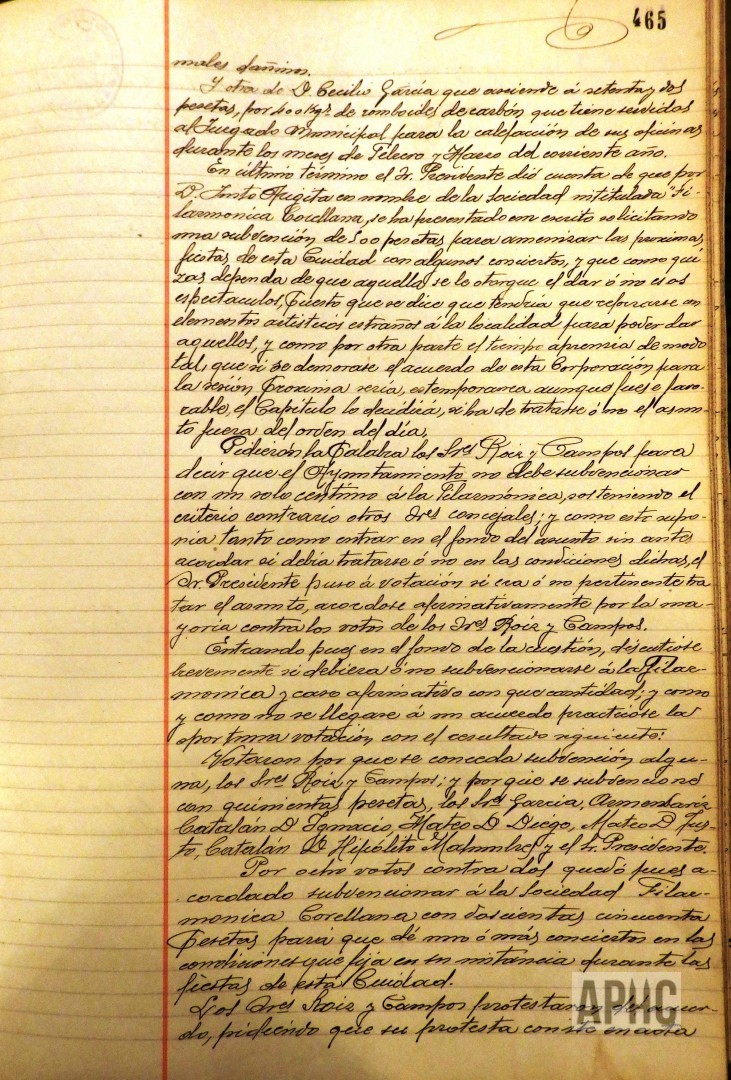 465
males dañinos.
Y otra de D. Cecilio García que asciende á setenta y dos
pesetas, por 400 Kgs. de romboides de carbón que tiene servidos
al Juzgado Municipal para la calefacción de sus oficinas
durante los meses de Febrero y Marzo del corriente año.
En último término el Sr. Presidente dió cuenta de que por
D. Justo Augita en nombre de la Sociedad intitulada "Fi-
larmonica Corellana, se ha presentado un escrito solicitando
una subvención de 500 pesetas para amenizar las proximas
fiestas de esta Ciudad con algunos conciertos, y que como qui
zas dependa de que aquella se le otorgue el dar ó no esos
espectaculos, puesto que se dice que tendría que reforzarse en
elementos artisticos estraños á la localidad para poder dar
aquellos, y como por otra parte el tiempo apremia de modo
tal, que si se demorase el acuerdo de esta Corporación para
la sesión proxima sería, estemporanea aunque fuese favo-
rable, el Capítulo lo decidiría, si ha de tratarse ó no el asun-
to fuera del orden del día.
Pidieron la palabra los Sres Roiz y Campos para
decir que el Ayuntamiento no debe subvencionar
con un solo centimo á la Filarmónica, sosteniendo el
criterio contrario otros Sres concejales; y como esto supo-
nia tanto como entrar en el fondo del asunto sin antes
acordar si debía tratarse ó no en las condiciones dichas, el
Sr. Presidente puso á votación si era ó no pertinente tra
tar el asunto, acordose afirmativamente por la ma-
yoria contra los votos de los Sres Roiz y Campos.
Entrando pues en el fondo de la cuestión, discutiose
brevemente si debiera ó no subvencionarse á la Filar-
monica y caso afirmativo con que cantidad; y como
y como no se llegase á un acuerdo practicose la
oportuna votación con el resultado siguiente:
Votaron por que se conceda subvención algu-
na, los Sres Roiz y Campos; y por que se subvencione
con quinientas pesetas, los Sres Garcia, Armendariz
Catalán D. Ignacio, Mateo D. Diego, Mateo D. Jus-
to, Catalán D. Hipólito y el Sr. Presidente.
Por ocho votos contra dos quedó pues a-
cordado subvencionar á la Sociedad Filar-
monica Corellana con doscientas cincuenta
pesetas para que dé uno ó más conciertos en las
condiciones que fija en su instancia durante las
fiestas de esta Ciudad.
Los Sres Roiz y Campos protestaron del acuer-
do, pidiendo que su protesta conste en acta
APHC